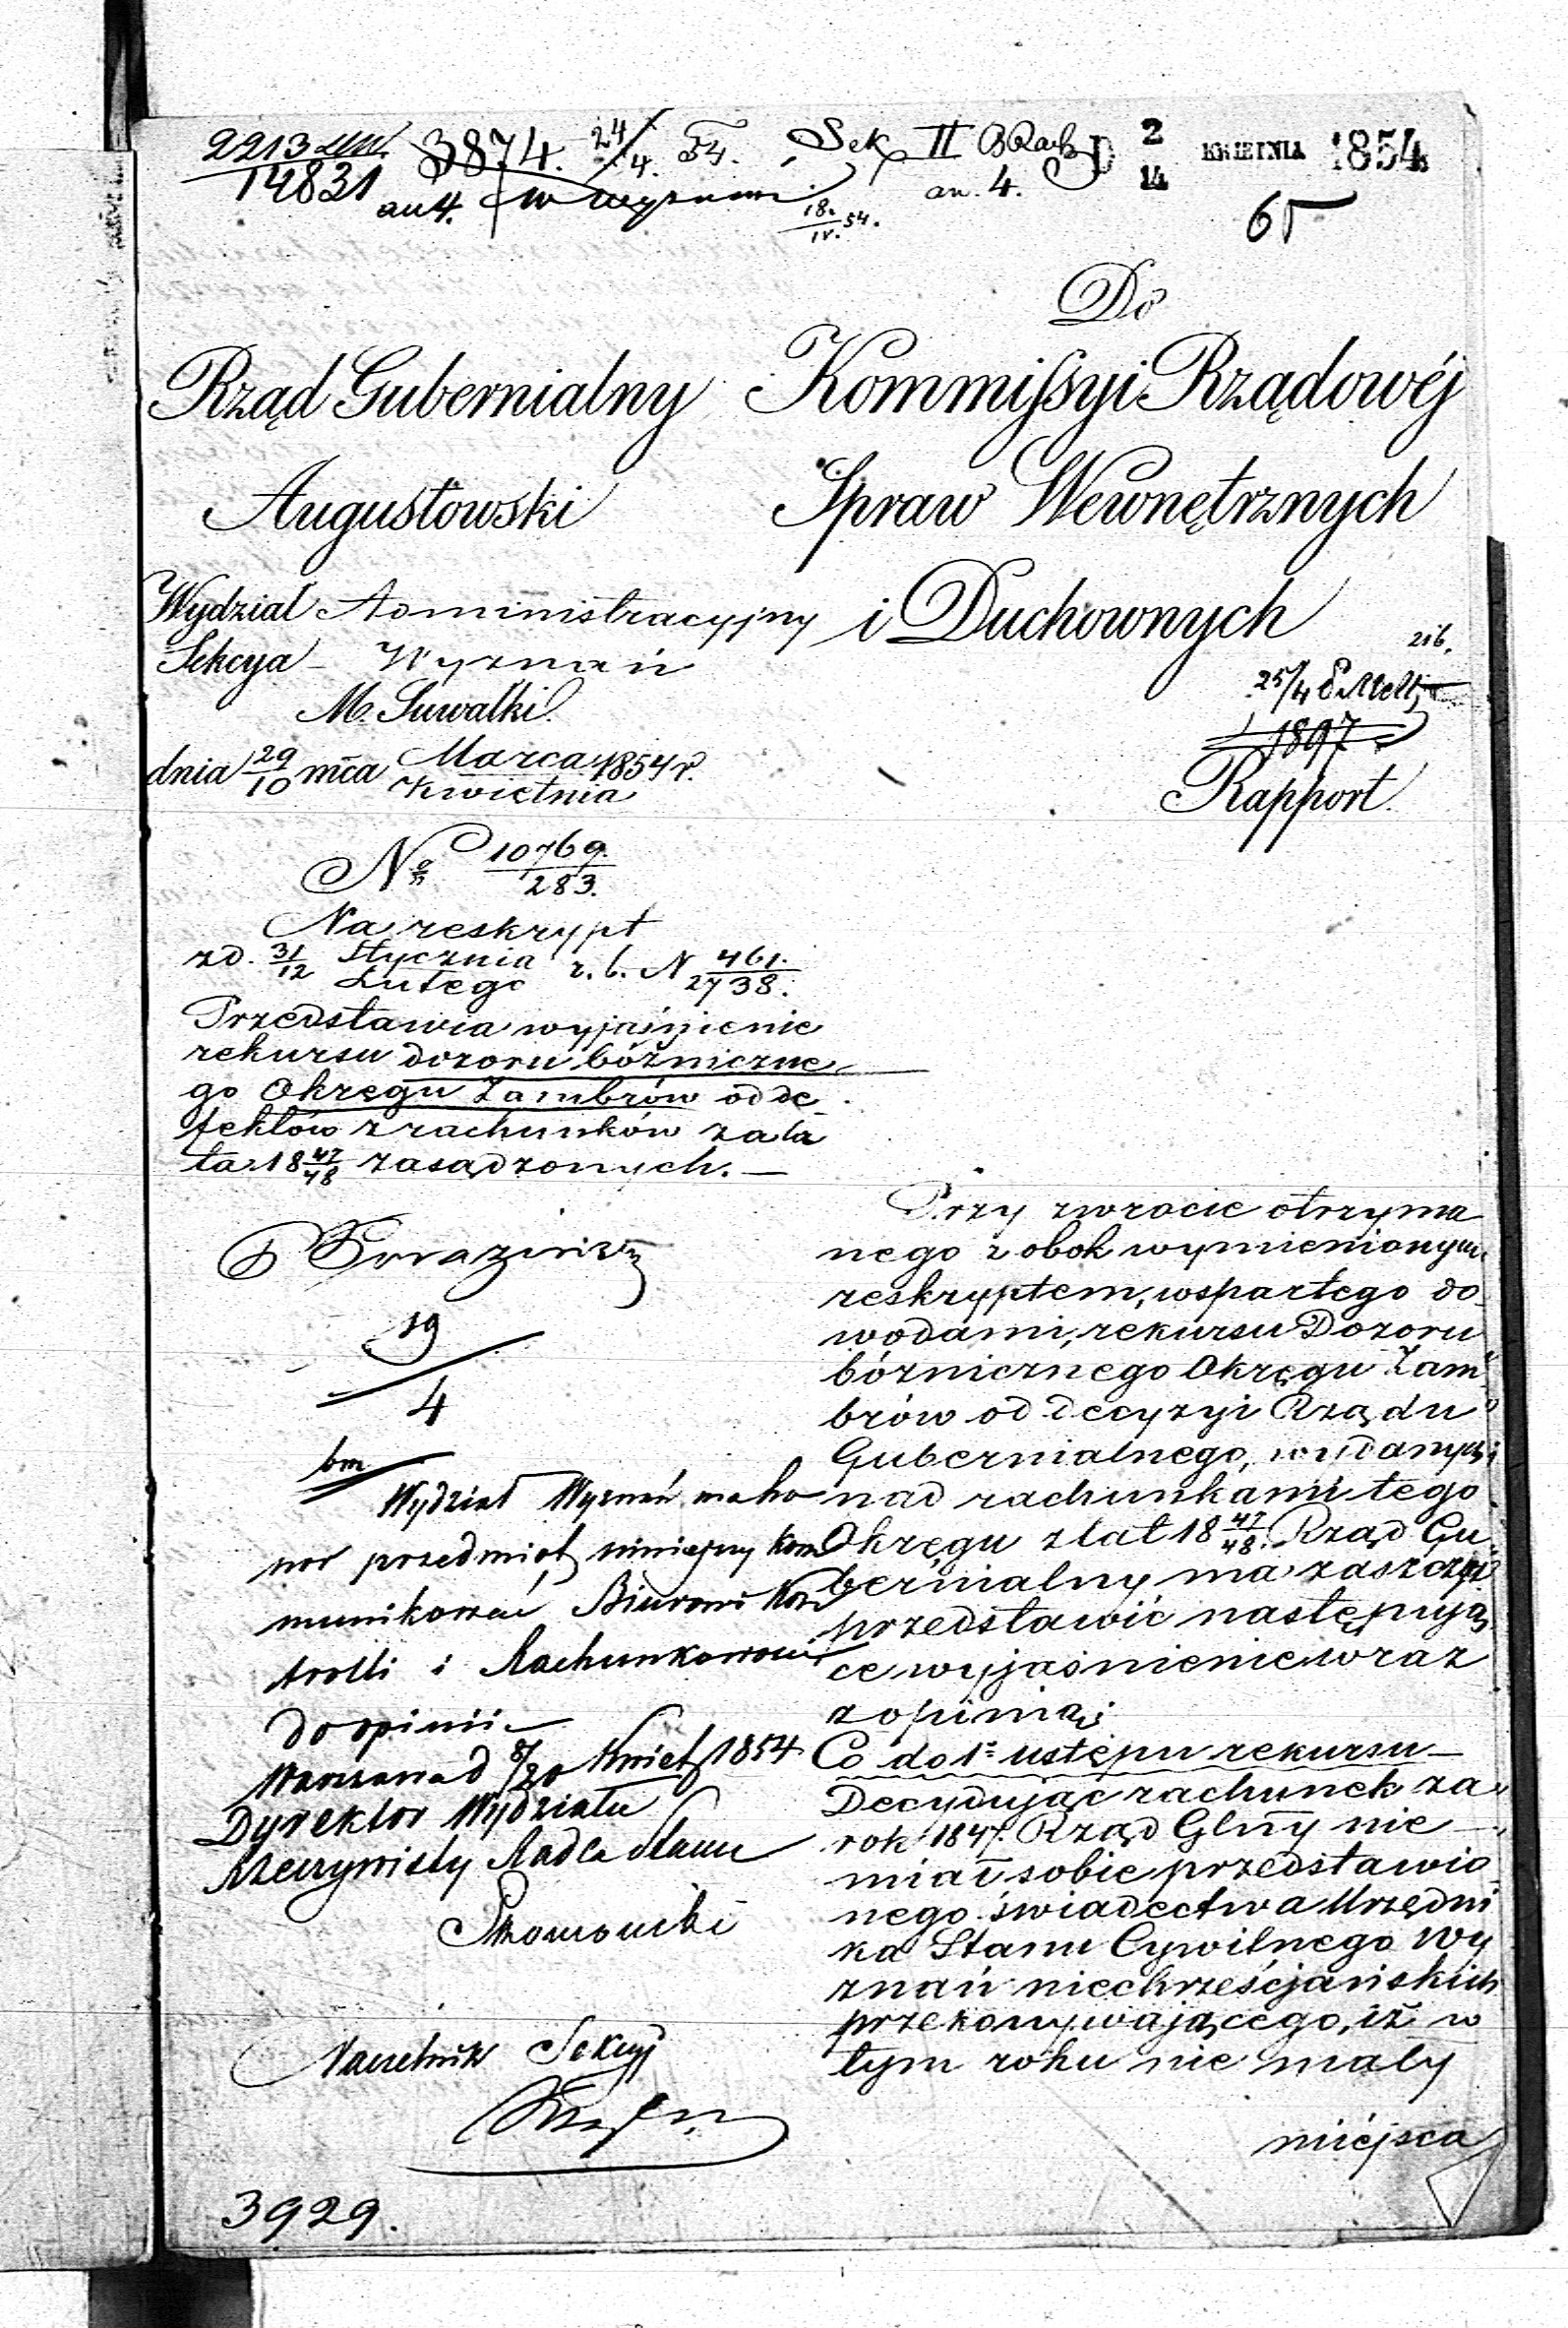 2213
14831
3874. 24/4. 54.
an 4.
18./IV. 54.
Sek II
an. 4.
D 2/14 KWIETNIA 1854
65
Do
Kommissyi Rządowéj
Spraw Wewnętrznych
i Duchownych
Rząd Gubernialny
Augustowski
Wydział Administracyjny
Sekcya - Wyznań
M. Suwałki.
dnia 29/10 mca Marca/Kwietnia 1854 r.
25/4
1897
Rapport.
No 10769./283.
Na reskrypt
zd. 31/12 Stycznia/Lutego r. b. N 461./2738.
Przedstawia wyjaśnienie
rekursu dozoru bóżniczne
go Okręgu Zambrów od de
fektów z rachunków za la
ta 18 47/48 zasądzonych. —
19
4
bm
Wydział Wyznań ma ho
nor przedmiot niniejszy kom
munikować Biurowi Kon
trolli i Rachunkowości
do opinii
Warszawa d 8/20 Kwiet 1854
Dyrektor Wydziału
Rzeczywisty Radca Stanu
Naczelnik Sekcyi
3929.
Przy zwrocie otrzyma
nego z obok wymienionym
reskryptem, wspartego do
wodami, rekursu Dozoru
bóżnicznego Okręgu Zam
brów od decyzyi Rządu
Gubernialnego, wydanych
nad rachunkami tego
Okręgu z lat 18 47/48. Rząd Gu
bernialny ma zaszczyt
przedstawić następują
ce wyjaśnienie wraz
z opinią;
Co do 1o ustępu rekursu —
Decydując rachunek za
rok 1847. Rząd Glny nie
miał sobie przedstawio
nego świadectwa Urzędni
ka Stanu Cywilnego Wy
znań niechrześcjańskich
przekonywającego, iż w
tym roku nie mały
miéjsca